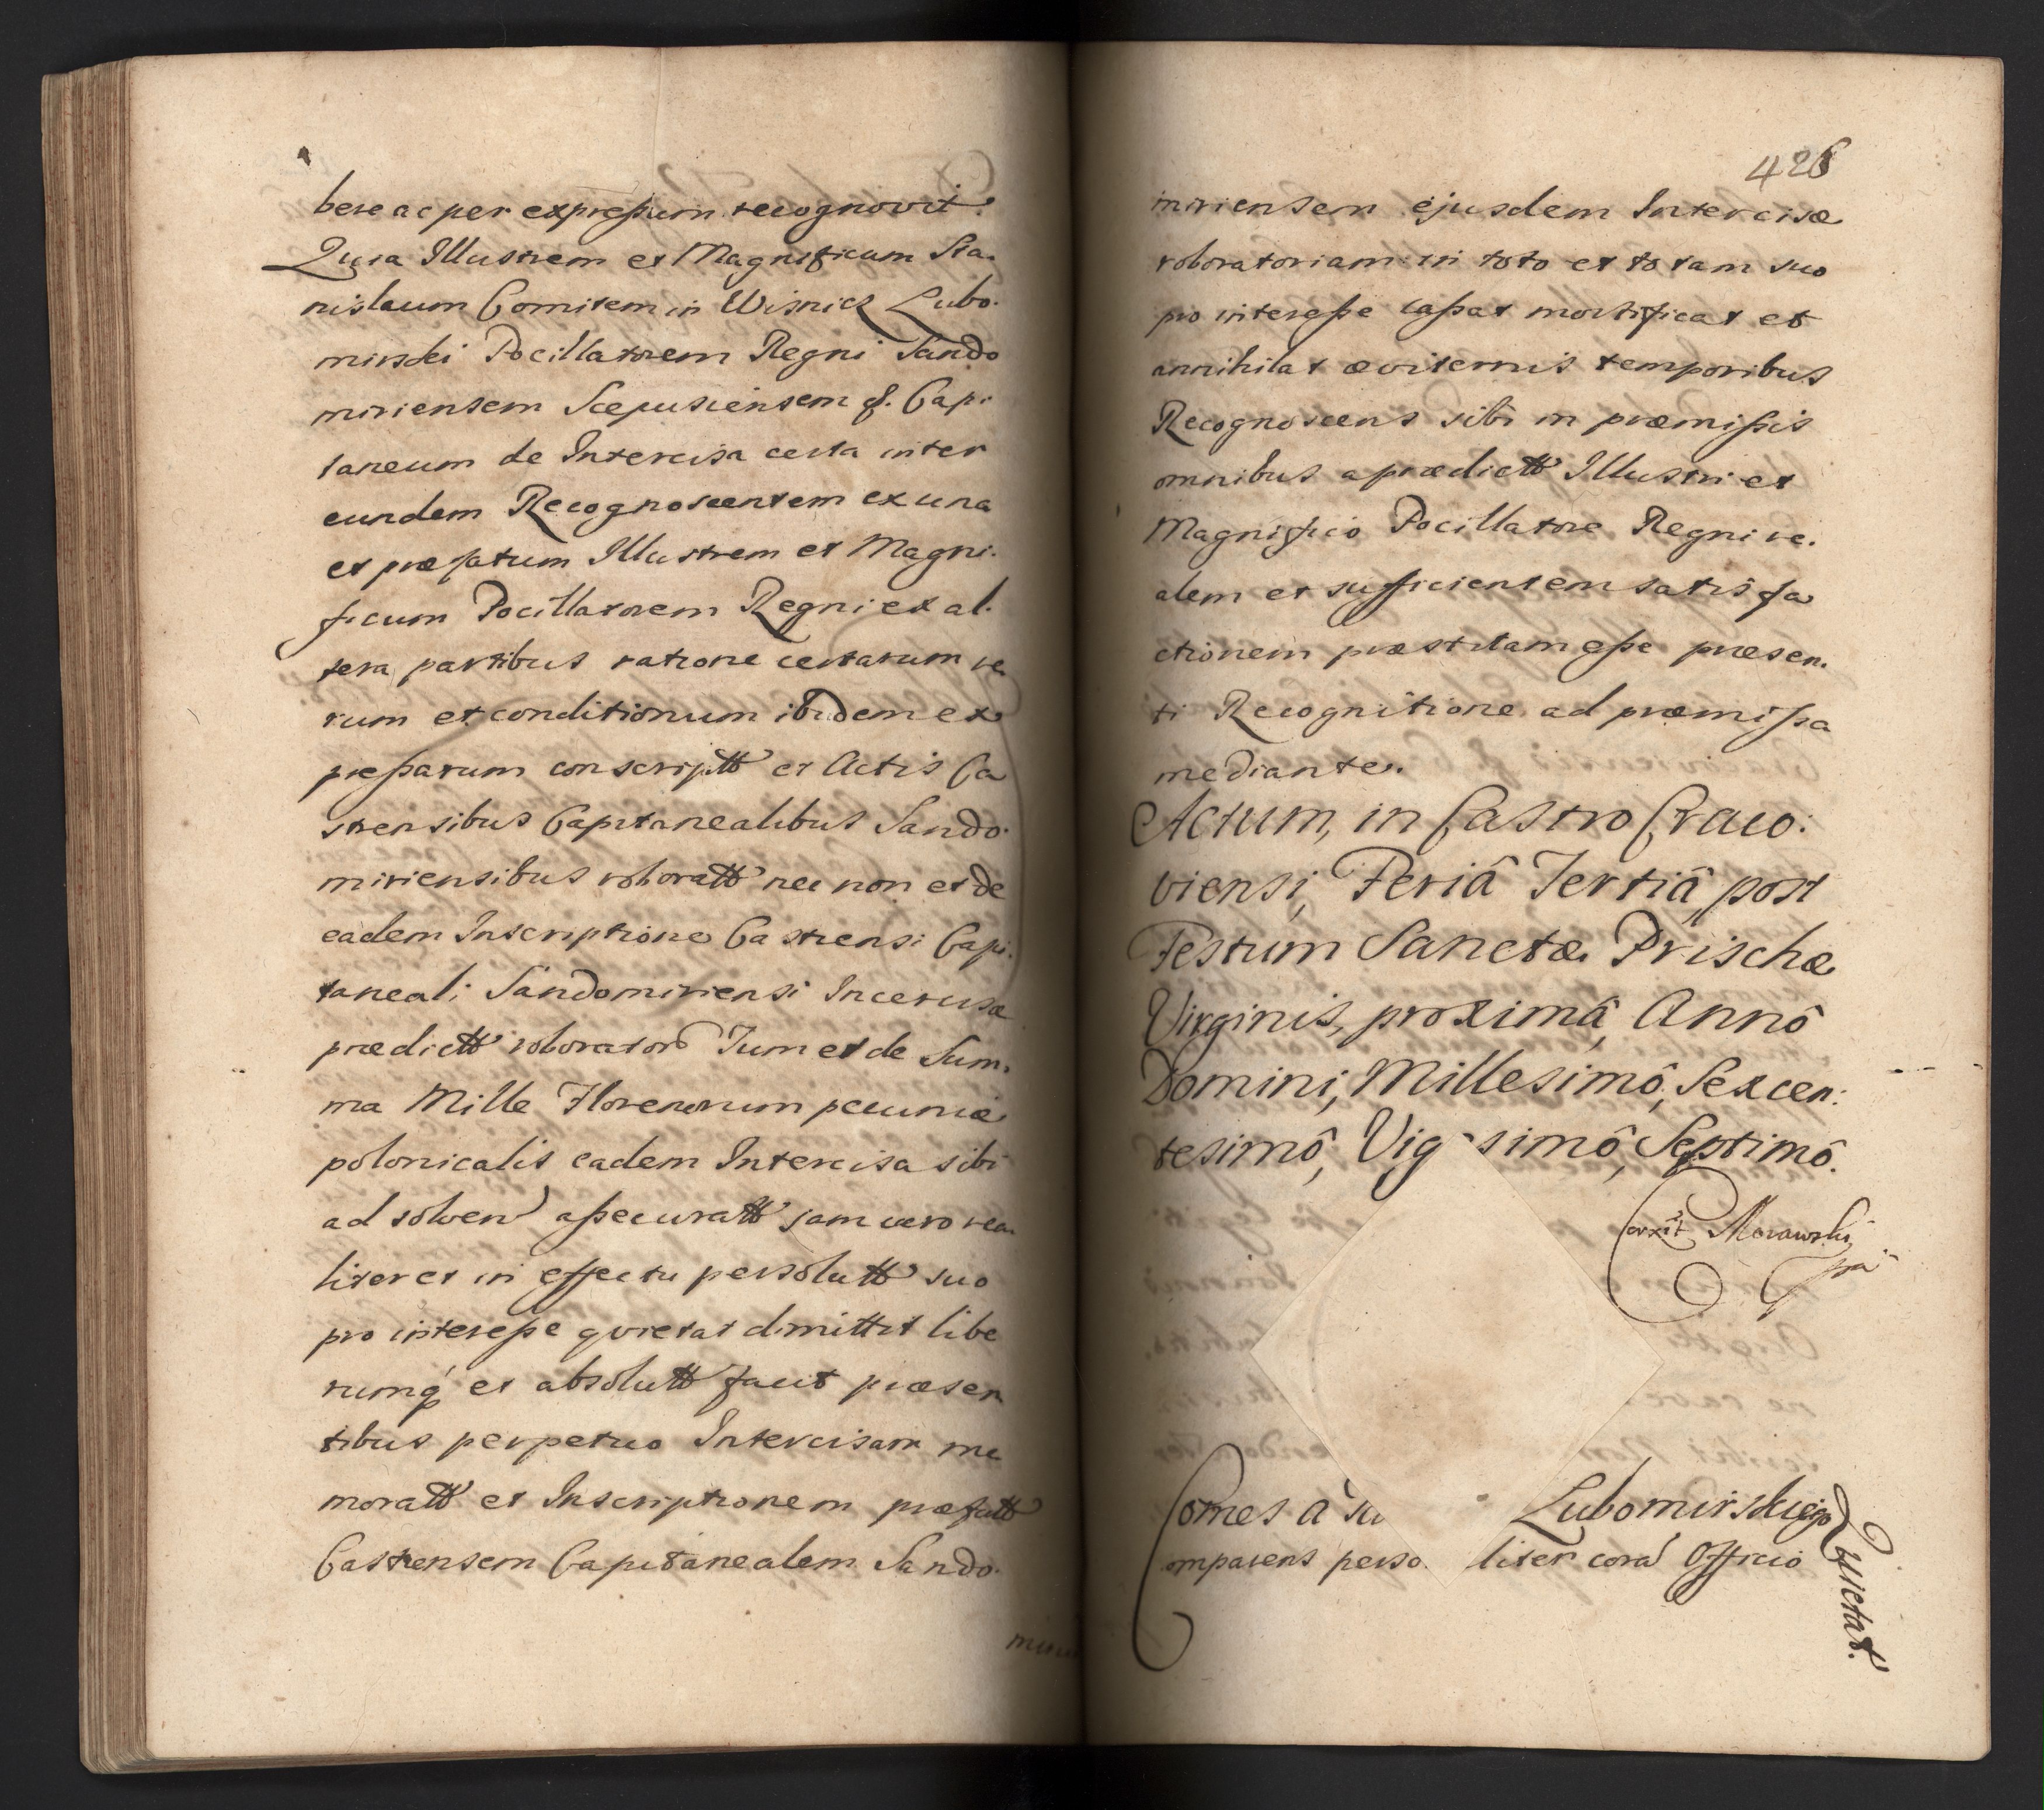 bere ac per expreßum recognovit
Quia Illustrem et Magnificum Sta-
nislaum Comitem in Wisnicz Lubo-
mirski Pocillatorem Regni Sando
miriensem Scepusiensem g. Capi
taneum de Intercisa certa inter
eundem Recognoscentem ex una
et præfatum Illustrem et Magni-
ficum Pocillatorem Regni ex al-
tera partibus ratione certarum re
rum et conditionum ibidem ex
preßarum conscriptt et Actis Ca
strensibus Capitanealibus Sando-
miriensibus roboratt nec non et de
eadem Inscriptione Castrensi Capi-
taneali Sandomiriensi
prædictt roborator Tum et de Sum-
ma Mille Florenorum pecuniæ
polonicalis eadem Intercisa sibi
ad solven aßecuratt jam vero rea
liter et in effectu persolutt suo
pro intereße quietat dimittit libe
rumq et absolutt facit præsen
tibus perpetuo Intercisam me
moratt et Inscriptionem præfatt
Castrensem Capitanealem Sando-
428
miriensem ejusdem Intercisæ
roboratoriam in toto et totam suo
pro intereße caßat mortificat et
annihilat æviternis temporibus
Recognoscens sibi in præmißis
omnibus a prædictt Illustri et
Magnifico Pocillatore Regni re-
alem et sufficientem satisfa
ctionem præstitam eße præsen-
ti Recognitione ad præmißa
mediante.
Actum, in Castro Craco:
viensi, Feriâ Tertiâ, post
Festum Sanctæ Prischæ
Virginis, proximâ, Annô
Domini, Millesimô, Sexcen:
tesimô, Vig simô, Septimô.
Corxit Morawski
Comes à su Lubomirskiego
Quietat.
omparens perso liter cora Officio